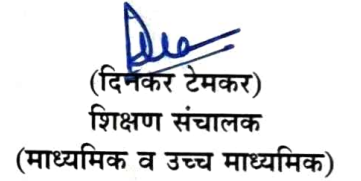 (दिनकर टेमकर)
शिक्षण संचालक
(माध्यमिक व उच्च माध्यमिक)